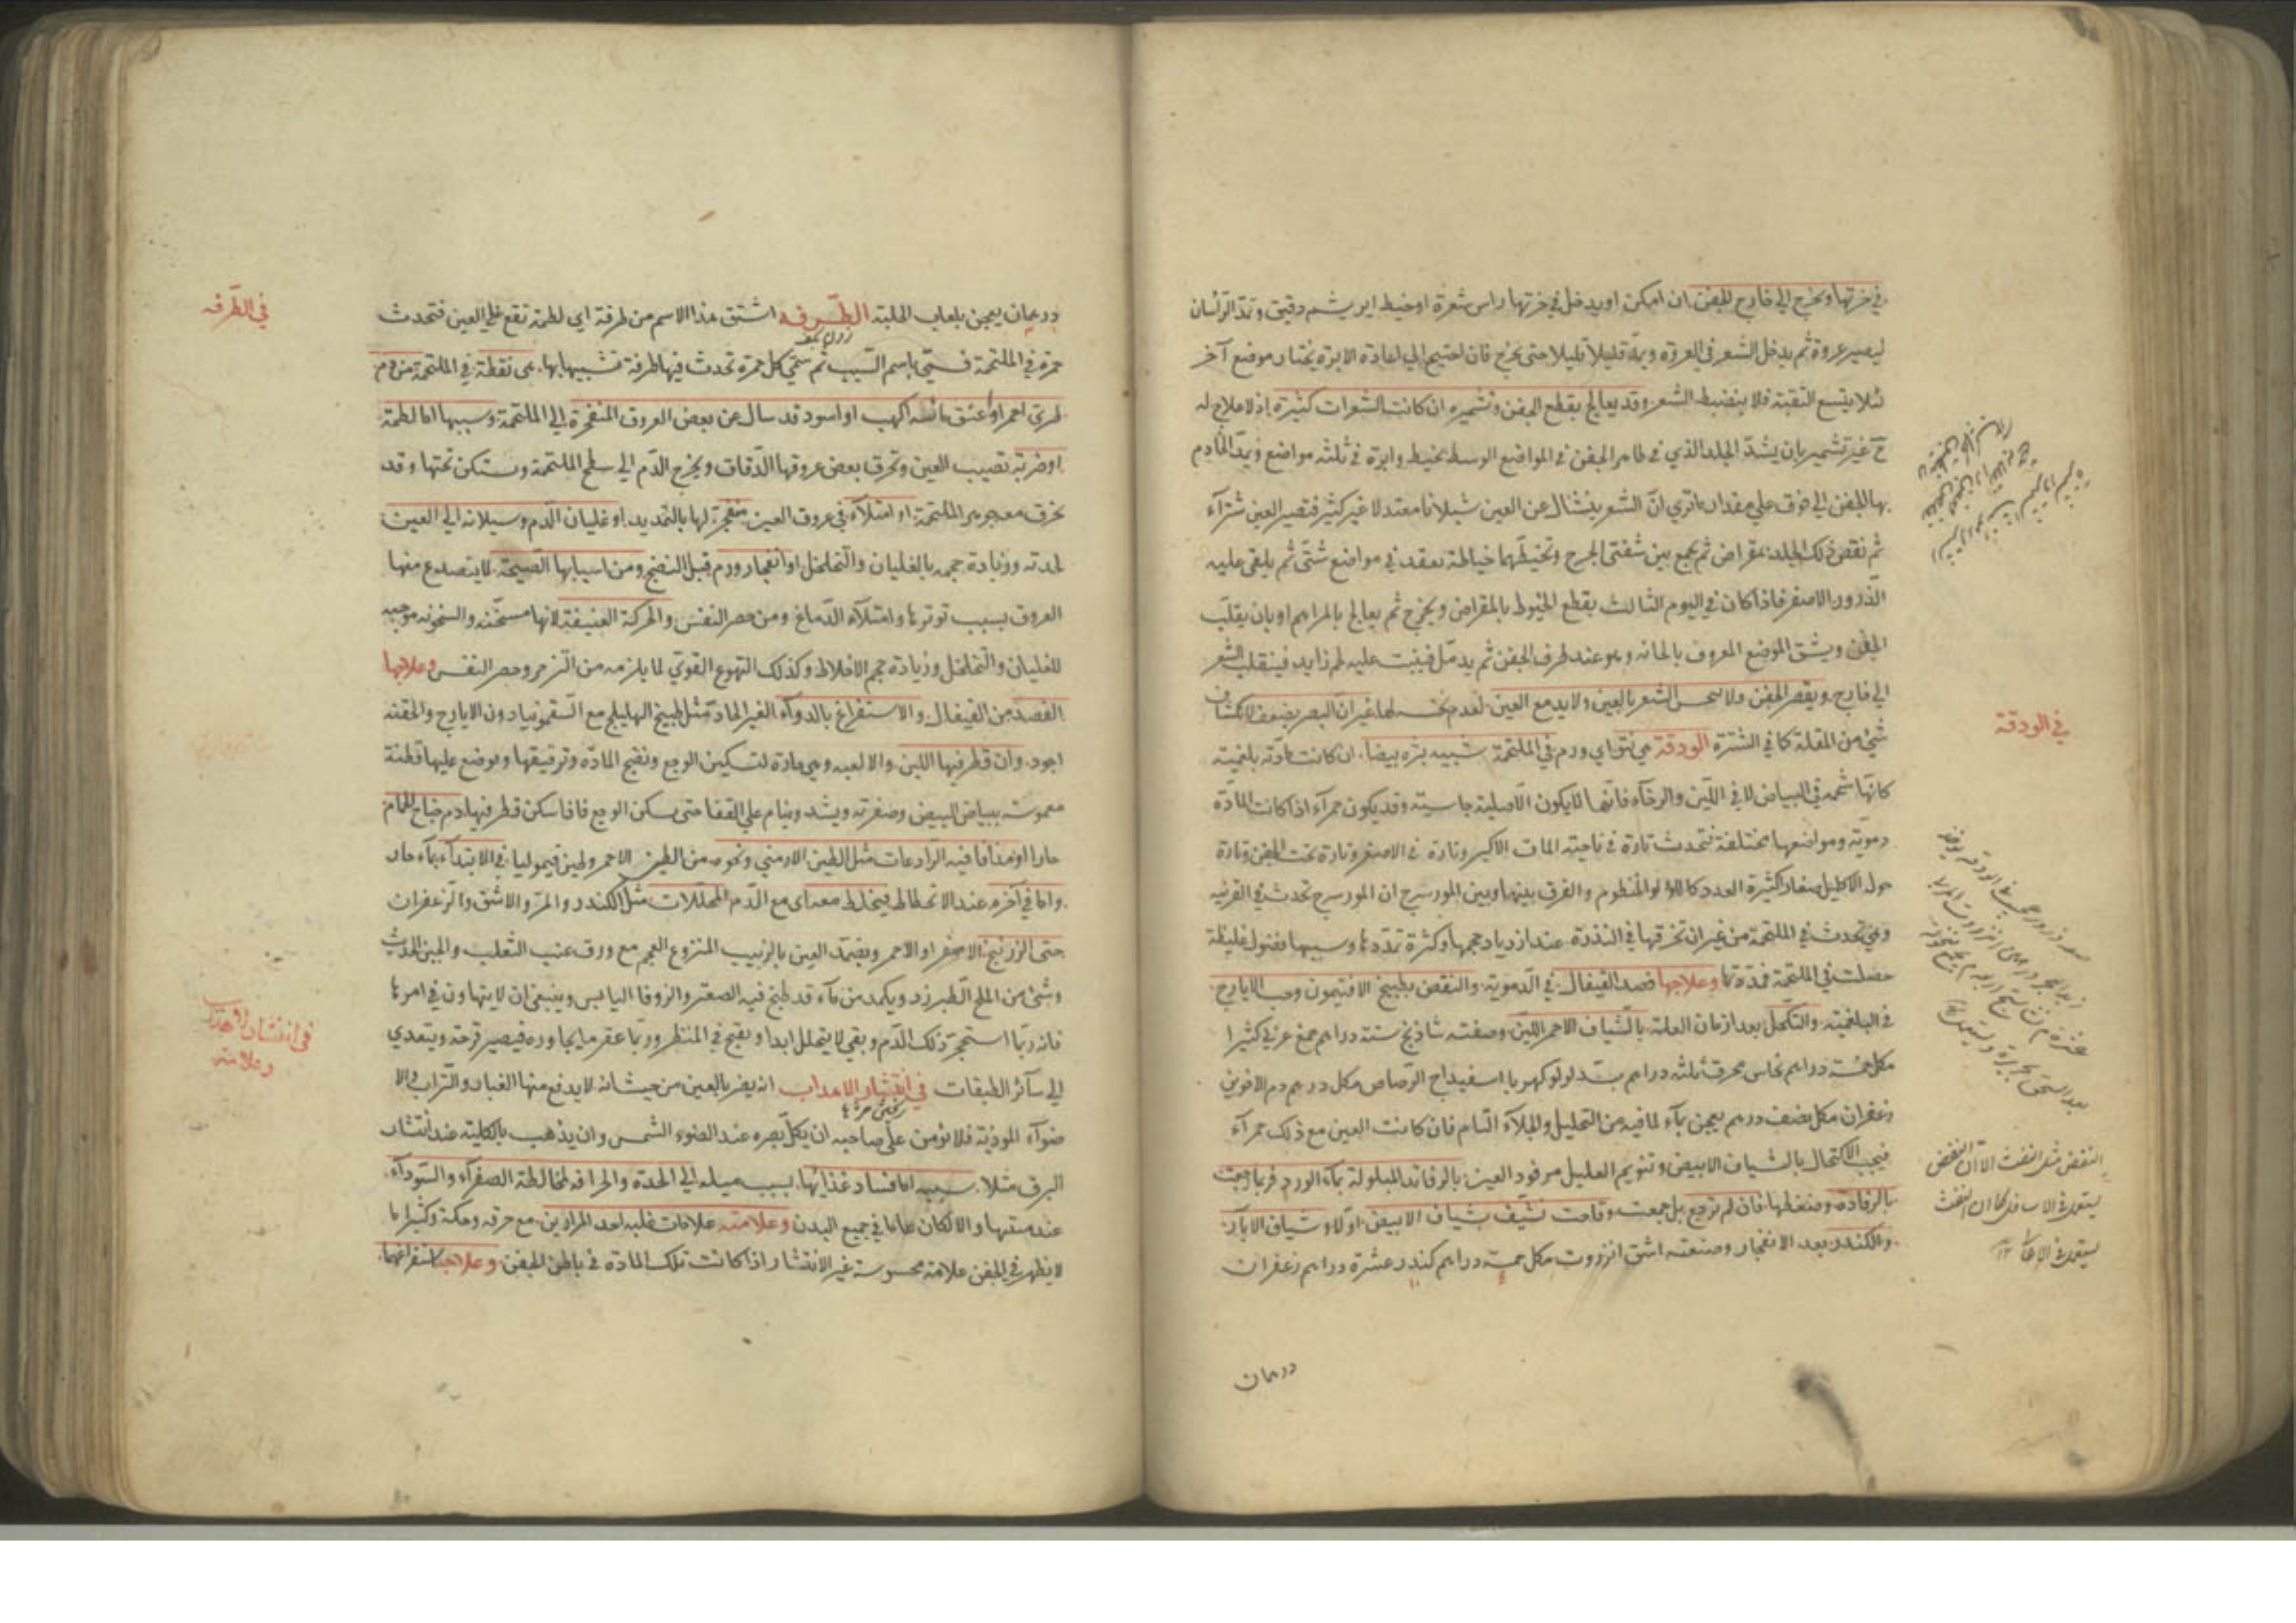 في خرتها ويخرج الي خارج الجفن ان امكن او يدخل في خرتها راس شعرة او خيط ابريشم دقيق وتمد الرأسان
ليصير عروة ثم يدخل الشعر في العروة ويمد قليلا قليلا حتى يخرج فان احتيج الي اعادة الابرة يختار موضع آخر
لئلا يتسع الثقبة فلا ينضبط الشعر وقد يعالج بقطع الجفن وتشميره ان كانت الشعرات كثيرة اذ لا علاج له
ح غير تشمير بان يشد الجلد الذي في ظاهر الجفن في المواضع الوسط بخيط وابرة في ثلثة مواضع ويمد الخادم
بها الجفن الي فوق علي مقدار ما تري ان الشعر ينشال عن العين شيلانا معتدلا غير كثير فتصير العين شتراء
ثم تقص ذلك الجلد بمقراض ثم يجمع بين شفتي الجرح وتخيطهما خياطة بعقد في مواضع شتى ثم يلقى عليه
الذرور الاصفر فاذا كان في اليوم الثالث يقطع الخيوط بالمقراض ويخرج ثم يعالج بالمراهم او بان يقلب
الجفن ويشق الموضع المعروف بالحانه وهو عند طرف الجفن ثم يدمل فينبت عليه لحم زايد فينقلب الشعر
الي خارج ويقصر الجفن ولا ينخس الشعر بالعين ولا يدمع العين لعدم نخسه لها غير ان البصر يضعف لانكشاف
شئ من المقلة كما في الشترة الودقة هي نتو اي ورم في الملتحمة شبيه بثرة بيضا ان كانت مادته بلغمية
كانها شحمة في البياض لا في اللين والرخاء فانها لا يكون الا صلبة جاسية وقد يكون حمراء اذا كانت المادة
دموية ومواضعها مختلفة فتحدث تارة في ناحية الماق الاكبر وتارة في الاصغر وتارة تحت الجفن وتارة
حول الاكليل صغار كثيرة العدد كاللؤلو المنظوم والفرق بينها وبين المورسرج ان المورسرج تحدث في القرنيه
وهي تحدث في الملتحمة من غير ان تخرقها في الندرة عند ازدياد حجمها وكثرة تمددها وسببها فضول غليظة
حصلت في الملتحمة فمددتها وعلاجها فصد القيفال في الدموية والنفض بطبيخ الافتيمون وحب الايارج
في البلغمية والتكحل بعد ازمان العلة بالشياف الاحمر اللين وصفته شاذنج ستة دراهم صمغ عربي كثيرا
مكل خمسة دراهم نحاس محرق ثلثة دراهم بسد لولو كهربا اسفيداج الرصاص مكل درهم دم الاخوين
زعفران مكل نصف درهم يعجن بماء لما فيه من التحليل والجلاء التام فان كانت العين مع ذلك حمراء
فيجب الاكتحال بالشياف الابيض وتنويم العليل مرفود العين بالرفائد المبلولة بماء الورد فربما رجعت
بالرفادة وضغطها فان لم ترجع بل جمعت وقاحت تشيف بشياف الابيض اولا وشياف الابار
والكندر بعد الانفجار وصنعته اشق انزروت مكل خمسة دراهم كندر عشرة دراهم زعفران
درهمان
في الودقة
النفض مثل النفث الا ان النفض
يستعمل في الاسافل كما ان النفث
يستعمل في الاعالى ١٢
درهمان يعجن بلعاب الحلبة الطرفه اشتق هذا الاسم من طرفة اي لطمة تقع علي العين فتحدث
حمرة في الملتحمة فسمي باسم السبب ثم سمي كل حمرة تحدث فيها طرفة تشبيها بها هى نقطة في الملتحمة من دم
طرى احمر او عتيق مائت اكهب او اسود قد سال عن بعض العروق المنفجرة الي الملتحمة وسببها اما لطمة
او ضربة تصيب العين وتخرق بعض عروقها الدقاق ويخرج الدم الي سطح الملتحمة ويستكن تحتها وقد
يخرق معه جوهر الملتحمة او امتلاء في عروق العين منفجرة لها بالتمديد او غليان الدم وسيلانه الي العين
لحدته وزيادة حجمه بالغليان والتخلخل او انفجار ورم قبل النضج ومن اسبابها الصيحة لا يتصدع منها
العروق بسبب توترها وامتلاء الدماغ ومن حصر النفس والحركة العنيفة لانها مسخنه والسخونه موجبه
للغليان والتخلخل وزيادة حجم الاخلاط وكذلك التهوع القوي لما يلزمه من التزحر وحصر النفس وعلاجها
الفصد من القيفال والاستفراغ بالدواء الغير الحاد مثل طبيخ الهليلج مع السقمونيا دون الايارج والحقنه
اجود وان قطر فيها اللبن والالعبه وهي حارة لتسكين الوجع ونضج المادة وترقيقها ويوضع عليها قطنة
مغموسة ببياض البيض وصفرته ويشد وينام علي القفا حتى يسكن الوجع فاذا سكن قطر فيها دم جناح الحمام
حارا او مدافا فيه الرادعات مثل الطين الارمني ونحوه من الطين الاحمر وطين قيموليا في الابتداء بماء حار
واما في آخره عند الانحطاط فيخلط معه اى مع الدم المحللات مثل الكندر والمر والاشق والزعفران
حتى الزرنيخ الاصفر او الاحمر ويضمد العين بالزبيب المنزوع العجم مع ورق عنب الثعلب والجبن الحديث
وشئ من الملح الطبرزد ويكمد من ماء قد طبخ فيه الصعتر والزوفا اليابس وينبغى ان لا يتهاون في امرها
فانه ربما استحجر ذلك الدم وبقي لا يتحلل ابدا ويقبح في المنظر وربما عقر ما يجاوره فيصير قرحة ويتعدي
الي سائر الطبقات في انتشار الاهداب انه يضر بالعين من حيث انه لا يدفع منها الغبار والتراب ولا
ضواء الموذية فلا يؤمن علي صاحبه ان يكل بصره عند الضوء الشمس وان يذهب بالكلية عند انتشار
البرق مثلا سببه اما فساد غذائها بسبب ميله الي الحدة والحرافه لمخالطة الصفراء والسوداء
عند عفنها والا لكان عاما في جميع البدن وعلامته علامات غلبه احد المرارين مع حرقه وحكة وكثيرا ما
لا يظهر في الجفن علامة محسوسة غير الانتشار اذا كانت تلك المادة في باطن الجفن وعلاجها استفراغها
في الطرفه
في انتشار الاهداب
وعلامته